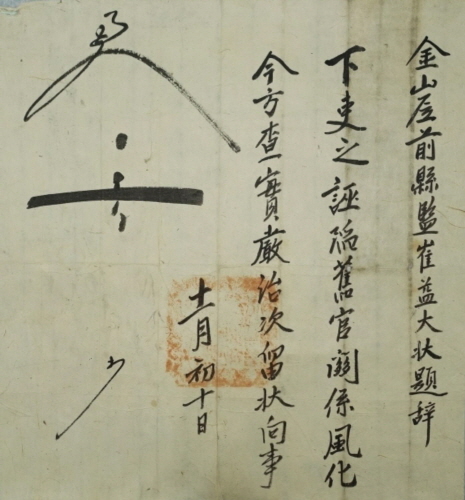 金山居前縣監崔益大狀題辞
下吏之誣陷舊官関係風化
今方査實嚴治次留狀向事
十一月初十日